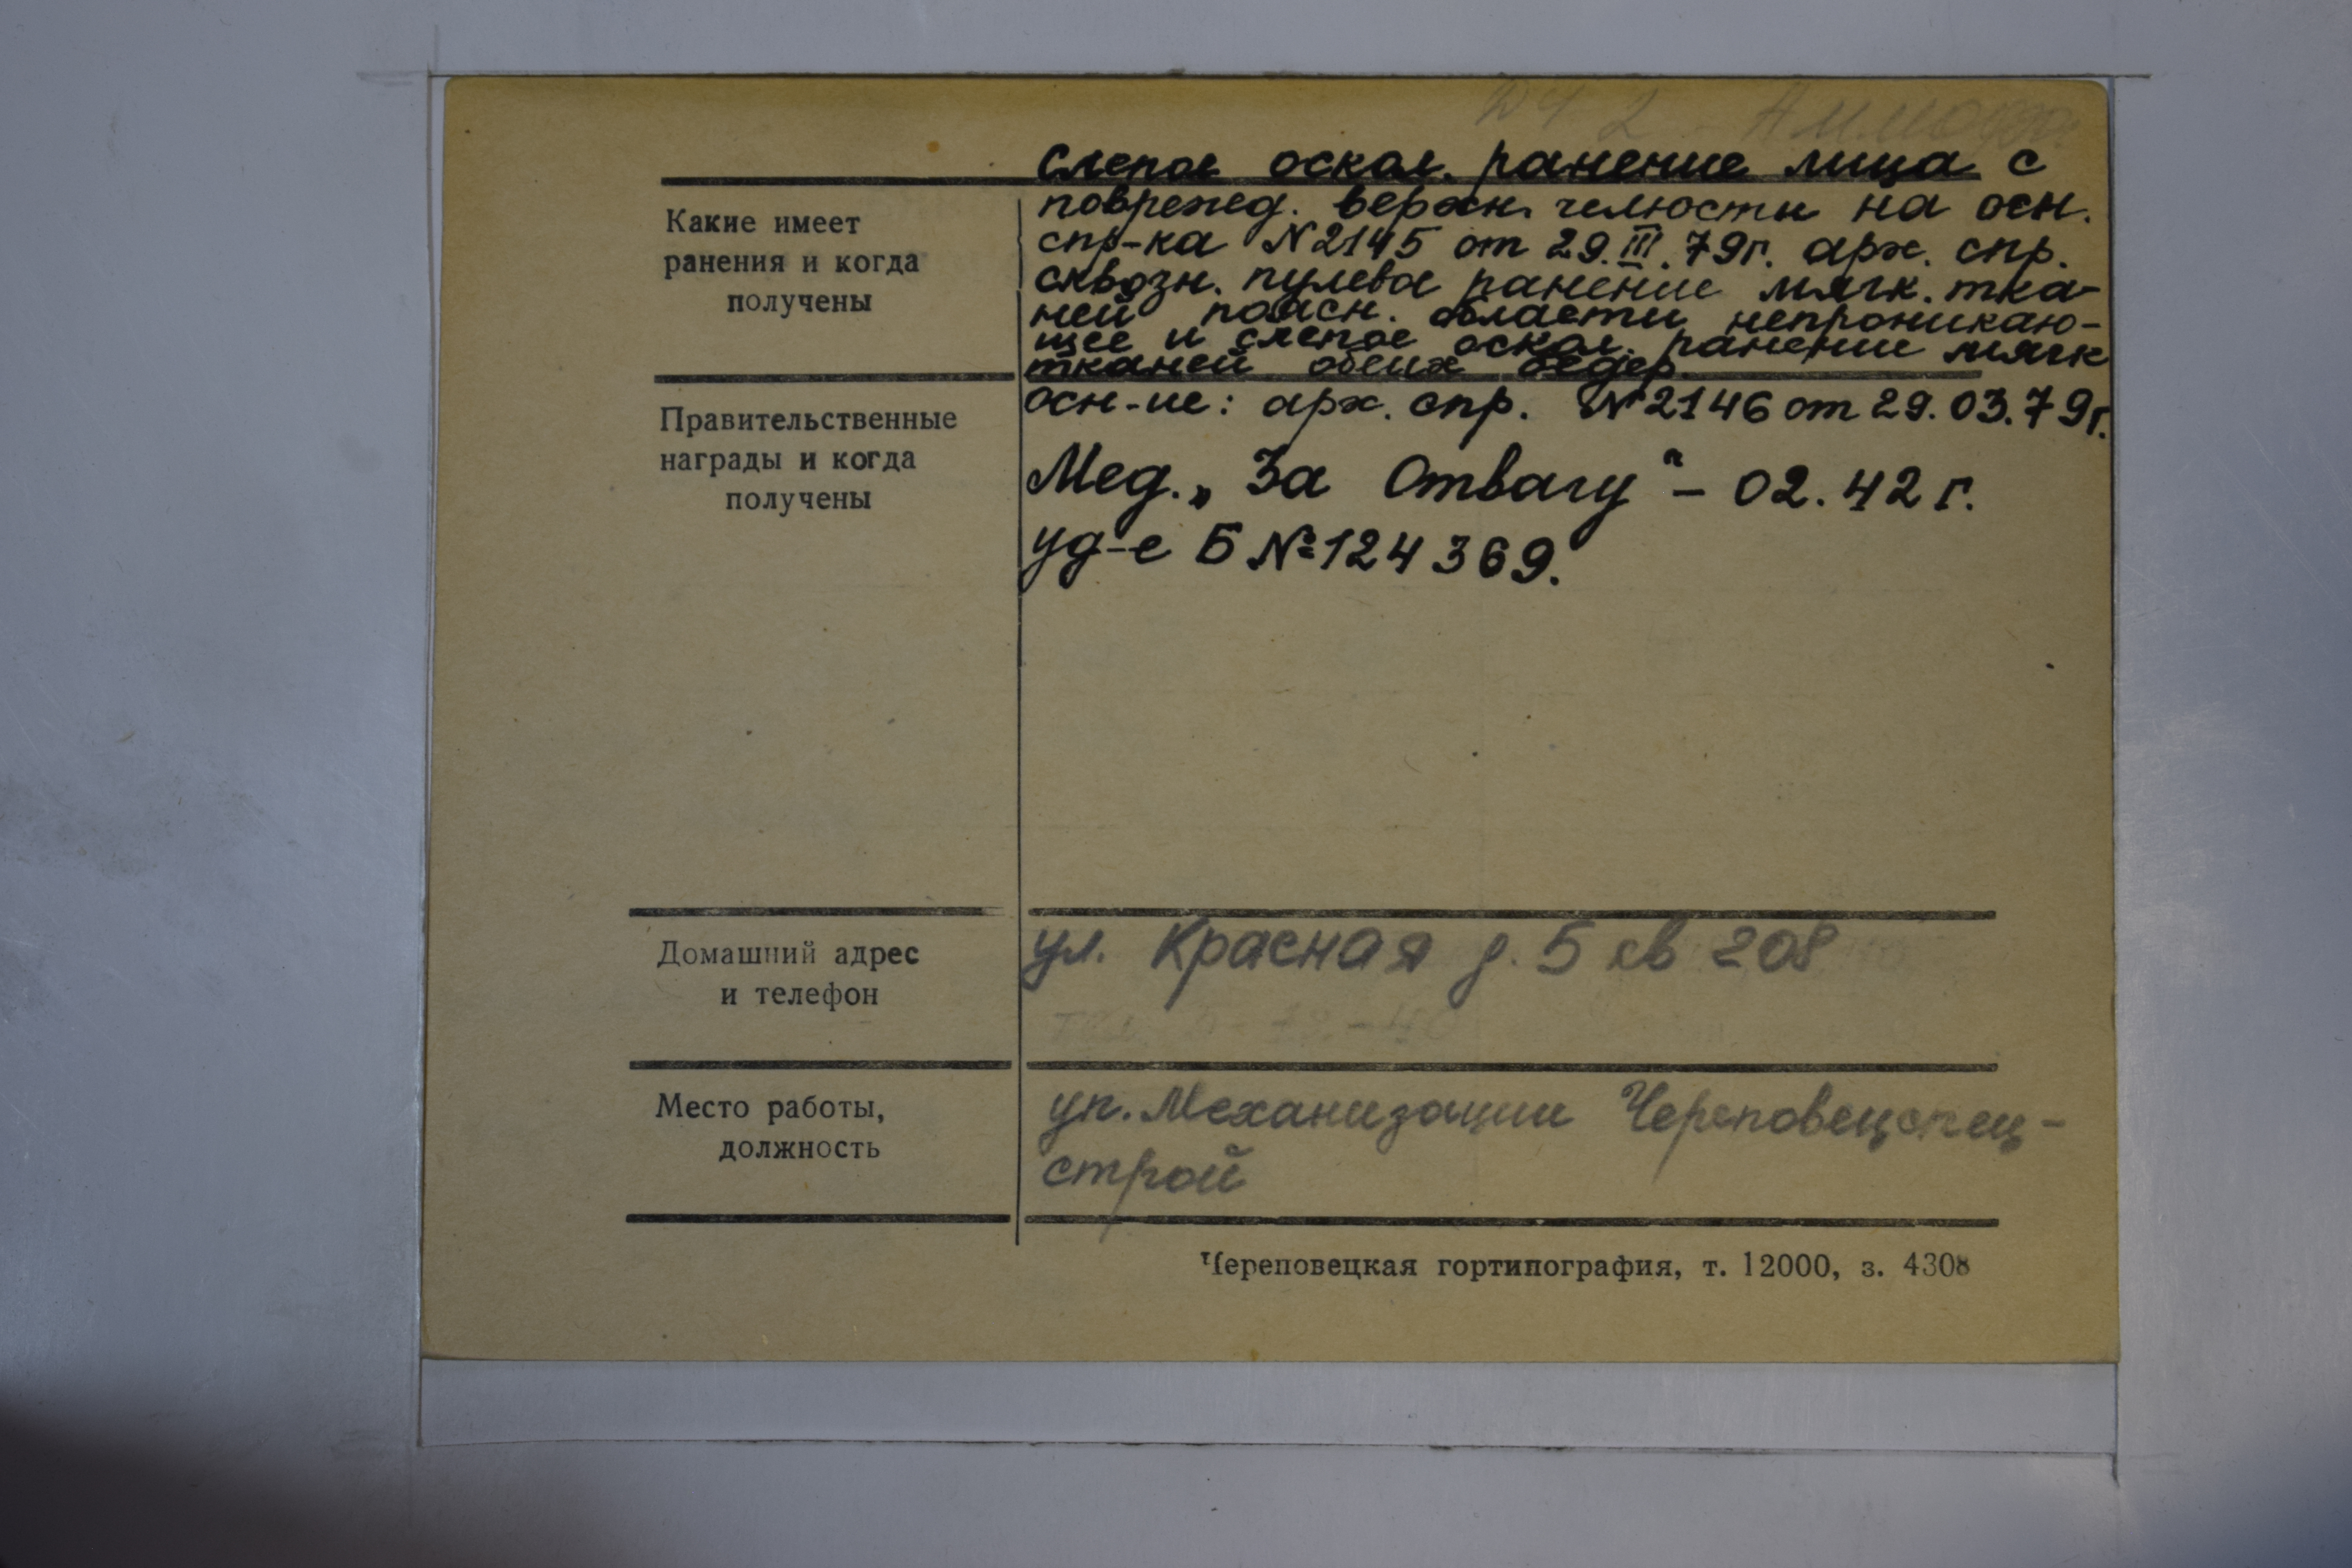 Слепое оскол. ранение лица с
Какие имеет
ранения и когда
получены
поврежд. верхн. челюсти на осн.
спр-ка N2145 от 29.III.79г. арх. спр.
сквозн. пулевое ранение мягк. тка-
ней поясн. области непроникаю-
щее и слепое оскол. ранение мягк
тканей обеих бедер.
Правительственные
награды и когда
получены
осн-ие: арх. спр. №2146 от 29.03.79г.
Мед. „За Отвагу" - 02.42 г.
уд-е Б №124369.
Домашний адрес
и телефон
ул. Красная д. 5 кв 208
Место работы,
должность
уп. Механизации Череповецспец-
строй
Череповецкая гортипография, т. 12000, з. 4308